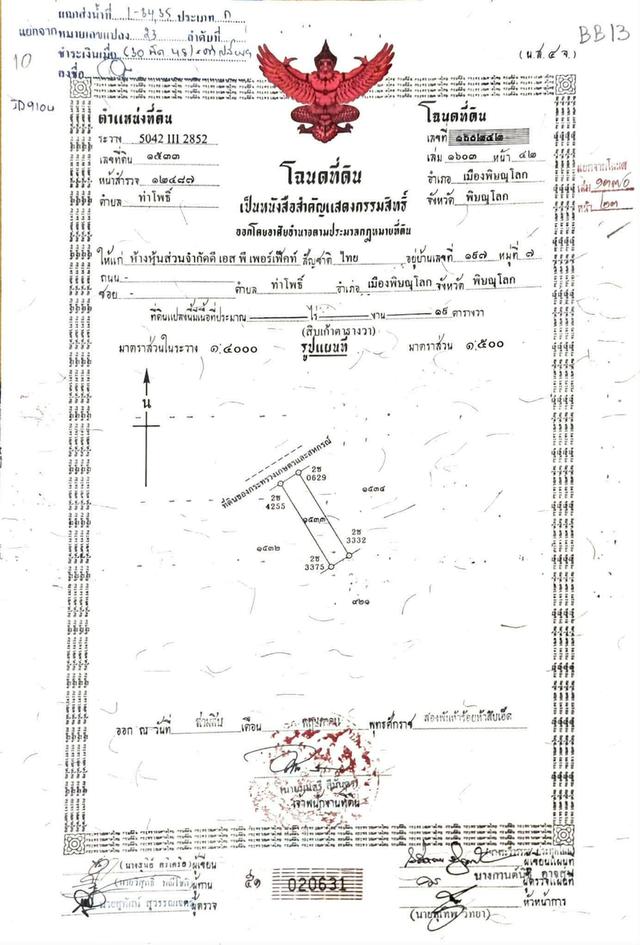 แยกส่งน้ำที่ 1-3435 ประเภท ก
แยกจากหมายเลขแปลง 23 ลำดับที่
ชำระเงินเมื่อ (30
ลงชื่อ
10
JD910บ
BB13
(น.ส.๔จ.)
ตำแหน่งที่ดิน
ระวาง 5042 III 2852
เลขที่ดิน ๑๕๓๓
หน้าสำรวจ ๑๒๔๘๗
ตำบล ท่าโพธิ์
โฉนดที่ดิน
เลขที่ ๑๖๐๒๔๒
เล่ม ๑๖๐๓ หน้า ๔๒
อำเภอ เมืองพิษณุโลก
จังหวัด พิษณุโลก
แยกจากโฉนด
เล่ม ๑๓๗๐
หน้า ๒๓
โฉนดที่ดิน
เป็นหนังสือสำคัญแสดงกรรมสิทธิ์
ออกโดยอาศัยอำนาจตามประมวลกฎหมายที่ดิน
ให้แก่ ห้างหุ้นส่วนจำกัดดี เอส พี เพอร์เฟ็คท์ สัญชาติ ไทย อยู่บ้านเลขที่ ๑๙๗ หมู่ที่ ๗
ถนน -
ซอย - ตำบล ท่าโพธิ์ อำเภอ เมืองพิษณุโลก จังหวัด พิษณุโลก
ที่ดินแปลงนี้มีเนื้อที่ประมาณ ไร่ งาน ๑๙ ตารางวา
(สิบเก้าตารางวา)
มาตราส่วนในระวาง ๑:๔๐๐๐ รูปแผนที่ มาตราส่วน ๑:๕๐๐
น
ที่ดินของกระทรวงเกษตรและสหกรณ์
2ช
0629
2ช
4255
๑๕๓๔
๑๕๓๓
๑๕๓๒
2ช
3332
2ช
3375
๙๒๑
ออก ณ วันที่ สามสิบ เดือน พฤษภาคม พุทธศักราช สองพันห้าร้อยห้าสิบเอ็ด
เจ้าพนักงานที่ดิน
ผู้เขียน
ผู้ทาน
ผู้ตรวจ
๕๑ 020631
ผู้เขียนแผนที่
ผู้ตรวจแผนที่
หัวหน้าการ
(นายสุเทพ วิทยา)